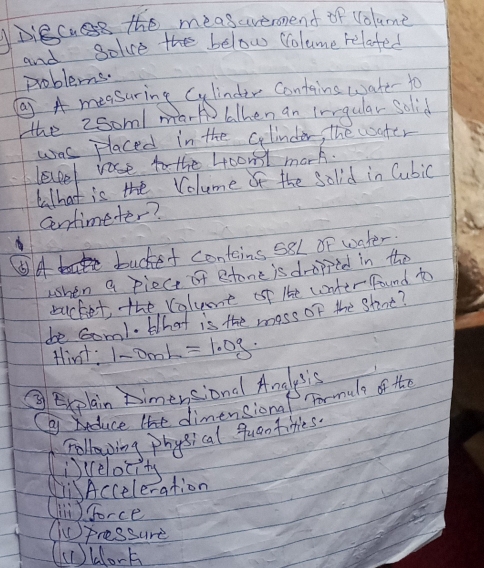 Discuss the measurement of volume
and solve the below volume related
problems.
(a) A measuring Cylinder Contains water to
the 250ml mark. When an irregular Solid
was placed in the cylinder, the water
level rose to the 400ml mark.
What is the Volume of the Solid in Cubic
Centimeter?
(b) A bucket contains 58L of water.
when a piece of stone is dropped in the
bucket, the Volume of the water found to
be 60ml. What is the mass of the stone?
Hint: 1-0mL = 1.0g.
(3) Explain Dimensional Analysis
(a) Deduce the dimensional formula of the
following physical quantities.
(i) velocity
(ii) Acceleration
(iii) force
(iv) Pressure
(v) Work